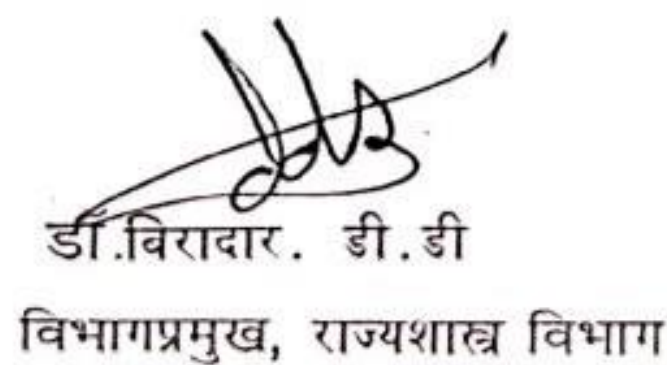 डॉ.विरादार. डी.डी
विभागप्रमुख, राज्यशास्त्र विभाग